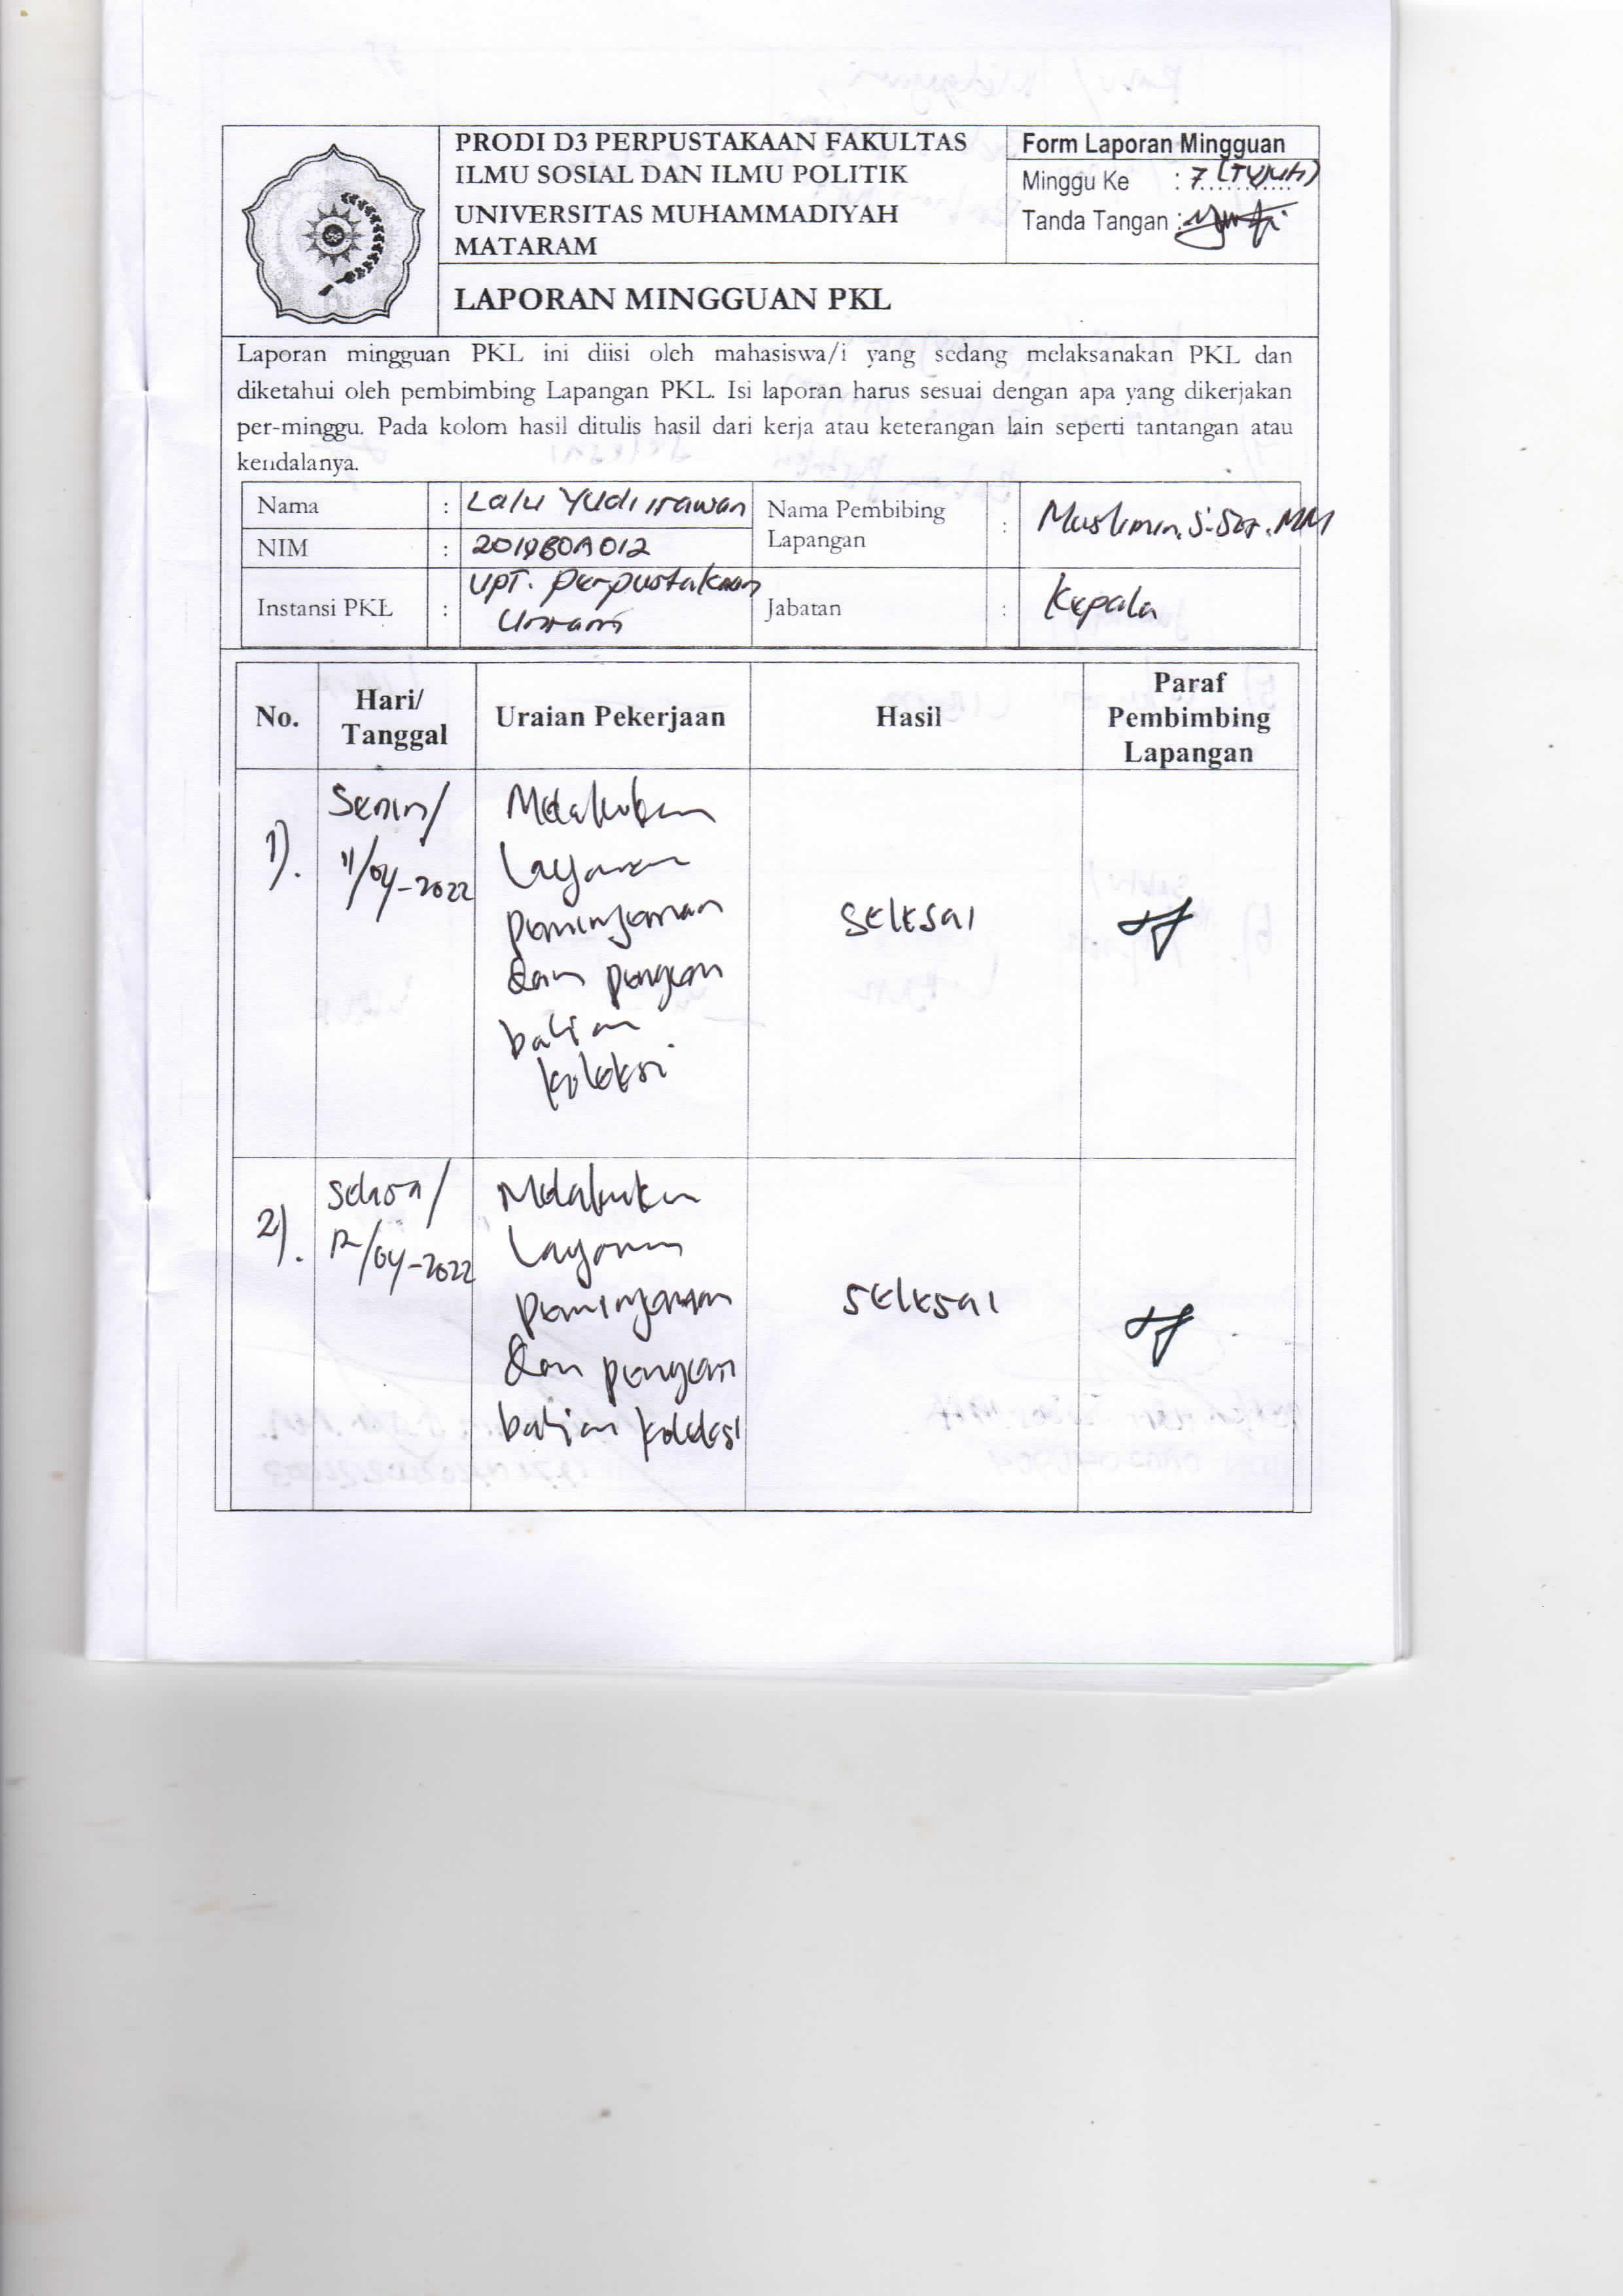 PRODI D3 PERPUSTAKAAN FAKULTAS
ILMU SOSIAL DAN ILMU POLITIK
UNIVERSITAS MUHAMMADIYAH
MATARAM
Form Laporan Mingguan
Minggu Ke : 7 (TUJUH)
Tanda Tangan :
LAPORAN MINGGUAN PKL
Laporan mingguan PKL ini diisi oleh mahasiswa/i yang sedang melaksanakan PKL dan
diketahui oleh pembimbing Lapangan PKL. Isi laporan harus sesuai dengan apa yang dikerjakan
per-minggu. Pada kolom hasil ditulis hasil dari kerja atau keterangan lain seperti tantangan atau
kendalanya.
Nama : Lalu Yudi irawan
NIM : 2019B0A012
Instansi PKL : UPT. perpustakaan
Unram
Nama Pembibing
Lapangan : Muslimin, S.Sos. MM
Jabatan : Kepala
No.
Hari/
Tanggal
Uraian Pekerjaan
Hasil
Paraf
Pembimbing
Lapangan
1).
Senin/
11/04-2022
Melakukan
Layanan
peminjaman
dan pengem
balian
koleksi
selesai
2).
Selasa/
12/04-2022
Melakukan
Layanan
peminjaman
dan pengem
balian koleksi
selesai